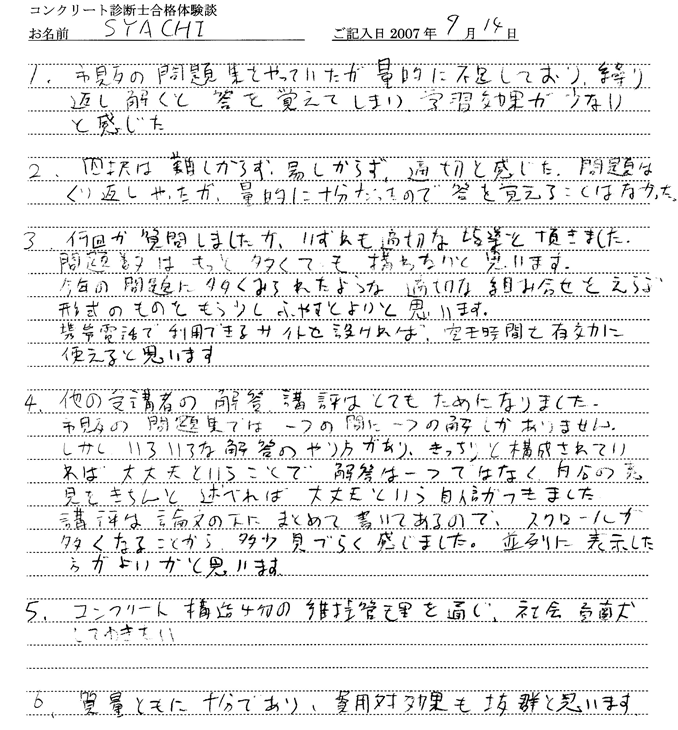 コンクリート診断士合格体験談
お名前 SYACHI ご記入日2007年 9月 14日
1. 市販の問題集をやっていたが量的に不足しており、繰り
返し解くと答を覚えてしまい、学習効果が少ない
と感じた
2. 四択は難しからず、易しからず、適切と感じた。問題は
くり返しやったが、量的に十分だったので答を覚えることはなかった。
3. 何回か質問しましたが、いずれも適切な指導を頂きました.
問題数はもっと多くても構わないかと思います.
今年の問題に多くみられたような適切な組み合せをえらぶ
形式のものをもう少しふやすとよいかと思います.
携帯電話で利用できるサイトを設ければ、空き時間を有効に
使えると思います
4. 他の受講者の解答、講評はとてもためになりました.
市販の問題集では一つの問に一つの解しかありません.
しかしいろいろな解答のやり方があり、きっちりと構成されてい
れば大丈夫ということで解答は一つではなく、自分の意
見をきちんと述べれば大丈夫という自信がつきました
講評は論文の下にまとめて書いてあるので、スクロールが
多くなることから、多少見づらく感じました。並列に表示した
方がよいかと思います
5. コンクリート構造物の維持管理を通じ、社会貢献
していきたい
6. 質量ともに十分であり、費用対効果も抜群と思います.